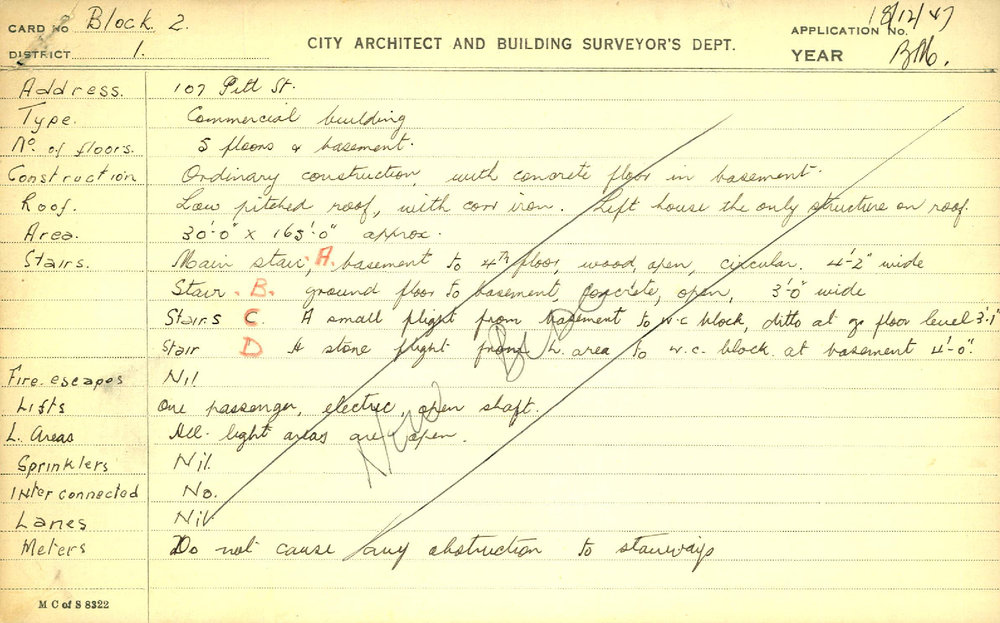 CARD NO Block 2.
APPLICATION NO. 18/12/47
DISTRICT 1.
CITY ARCHITECT AND BUILDING SURVEYOR'S DEPT.
YEAR
Address. 107 Pitt St.
Type. Commercial building
No. of floors. 5 floors & basement.
Construction Ordinary construction, with concrete floor in basement.
Roof. Low pitched roof, with corr iron. Lift house the only structure on roof.
Area. 30'-0" x 165'-0" approx.
Stairs. Main stair, A. basement to 4th floor, wood, open, circular. 4'-2" wide
Stair. B. ground floor to basement, concrete, open, 3'-0" wide
Stairs C. A small flight from basement to w.c block, ditto at go floor level 3'-1"
Stair D A stone flight from L. area to w.c. block at basement 4'-0".
Fire. escapes Nil
Lifts One passenger, electric, open shaft.
L. Areas All light areas are open.
Sprinklers Nil.
Inter connected No.
Lanes Nil.
Meters Do not cause any obstruction to stairways
New
M C of S 8322